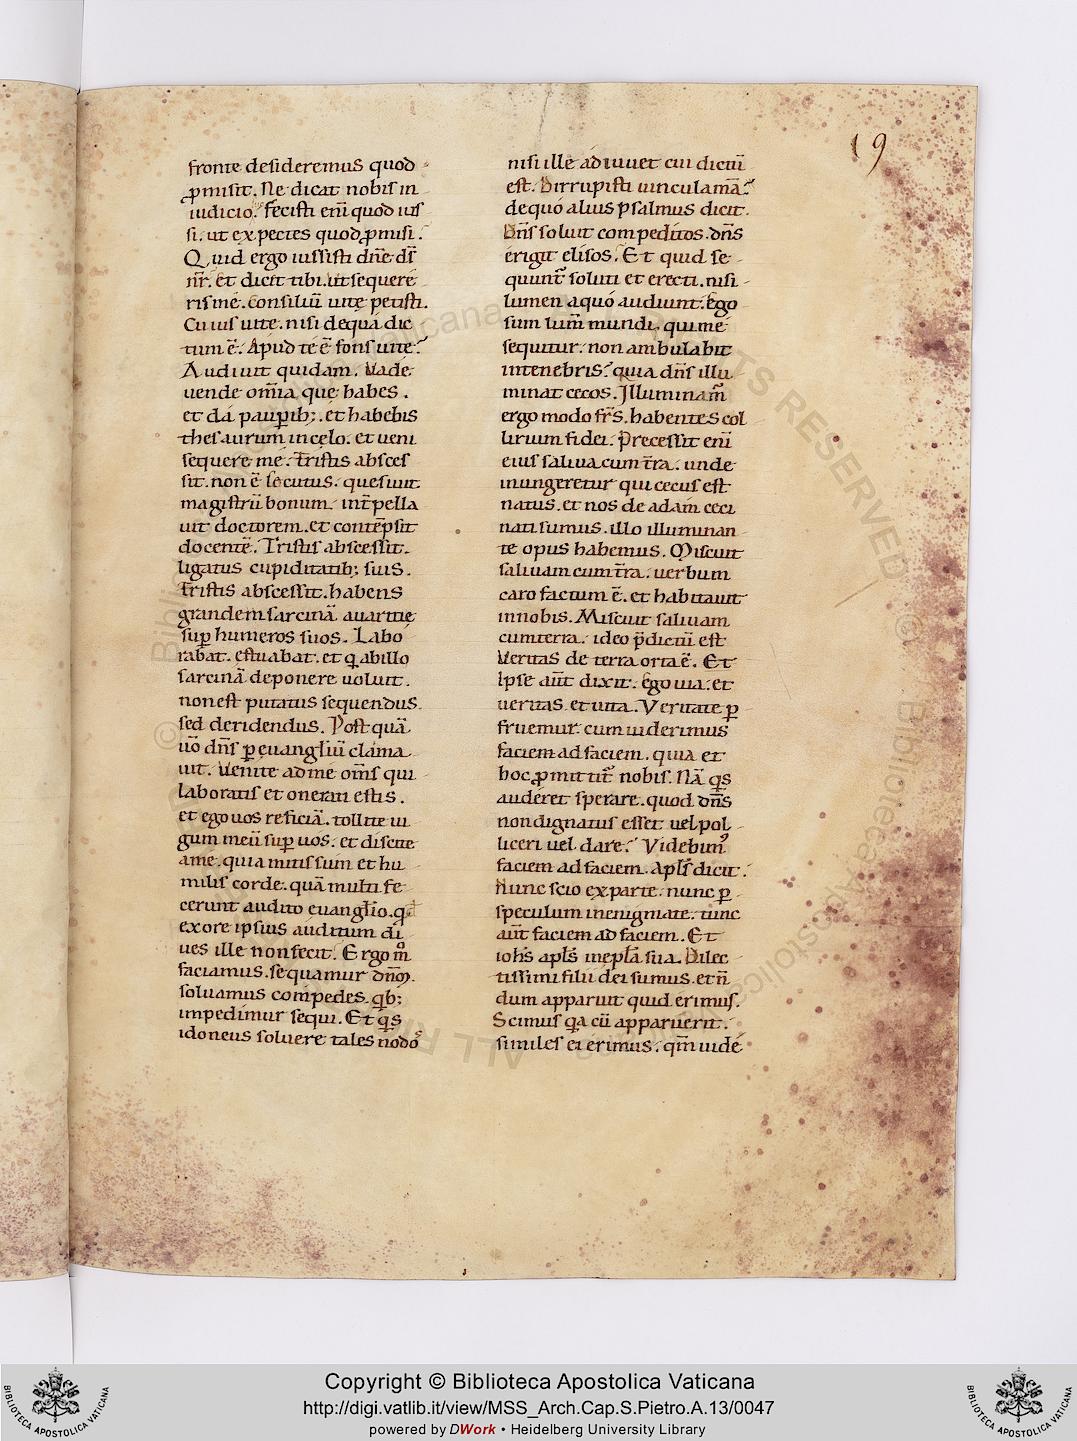 19
fronte desideremus quod
ꝓmisit. Ne dicat nobis in
iudicio. fecisti eni̅ quod ius
si. ut expectes quod ꝓmisi.
Quid ergo iussisti dn̅e ds̅
nr̅. et dicit tibi. ut sequere
ris me. Consiliu̅ uitę petisti.
Cuius uite. nisi dequa dic
tum e̅. Apud te e̅ fons uitę.
Audiuit quidam. Vade
uende om̅ia que habes.
et da pauꝑib;. et habebis
thesaurum in cęlo. et ueni
sequere me. Tristis absces
sit. non e̅ secutus. quesiuit
magistru̅ bonum. int̅pella
uit doctorem. et conte̅psit
docente̅. Tristis abscessit.
ligatus cupiditatib; suis.
Tristis abscessit. habens
grandem sarcina̅ auaritię
suꝑ humeros suos. Labo
rabat. estuabat. et q̅ abillo
sarcina̅ deponere uoluit.
non est putatus sequendus.
sed deridendus. Post qua̅
uo̅ dn̅s ꝑ euangl̅iu̅ clama
uit. Venite ad me om̅s qui
laboratis et onerati estis.
et ego uos reficia̅. tollite iu
gum meu̅ suꝑ uos. et discite
ame. quia mitis sum et hu
milis corde. qua̅ multi fe
cerunt audito euangl̅io. qd̅
ex ore ipsius auditum di
ues ille non fecit. Ergo m̊
faciamus. sequamur dn̅m.
soluamus compedes. qb;
impedimur sequi. Et qi̅s
idoneus soluere tales nodos
nisi ille adiuuet cui dictu̅
est. Dirrupisti uincula m̅a.
de quo alius psalmus dicit.
Dn̅s soluit compeditos. dn̅s
erigit elisos. Et quid se
quunt̅ soluti et erecti. nisi
lumen a quo audiunt. Ego
sum lum̅ mundi. qui me
sequitur. non ambulabit
in tenebris. quia dn̅s illu
minat cecos. Illuminam̅
ergo modo fr̅s. habentes col
lirium fidei. Precessit eni̅
eius saliua cum t̅ra. unde
inungeretur qui cecus est
natus. et nos de adam ceci
nati sumus. illo illuminan
te opus habemus. Miscuit
saliuam cum t̅ra. uerbum
caro factum e̅. et habitauit
in nobis. Miscuit saliuam
cum terra. ideo p̅dictu̅ est
Veritas de terra orta e̅. Et
Ipse aut̅ dixit. Ego uia. et
ueritas. et uita. Veritate ꝑ
fruemur. cum uiderimus
faciem ad faciem. quia et
hoc ꝓmittit̅ nobis. Na̅ qi̅s
auderet sperare. quod dn̅s
non dignatus esset uel pol
liceri uel dare. Videbim᾽
faciem ad faciem. apl̅s dicit.
Nunc scio ex parte. nunc ꝑ
speculum in enigmate. tunc
aut̅ faciem ad faciem. Et
ioh̅s apl̅s in epl̅a sua. Dilec
tissimi filii dei sumus. et n̅
dum apparuit quid erimus.
Scimus qa cu̅ apparuerit.
similes ei erimus. qm̅ uide
Copyright © Biblioteca Apostolica Vaticana
http://digi.vatlib.it/view/MSS_Arch.Cap.S.Pietro.A.13/0047
powered by DWork • Heidelberg University Library
BIBLIOTECA APOSTOLICA VATICANA
BIBLIOTECA APOSTOLICA VATICANA